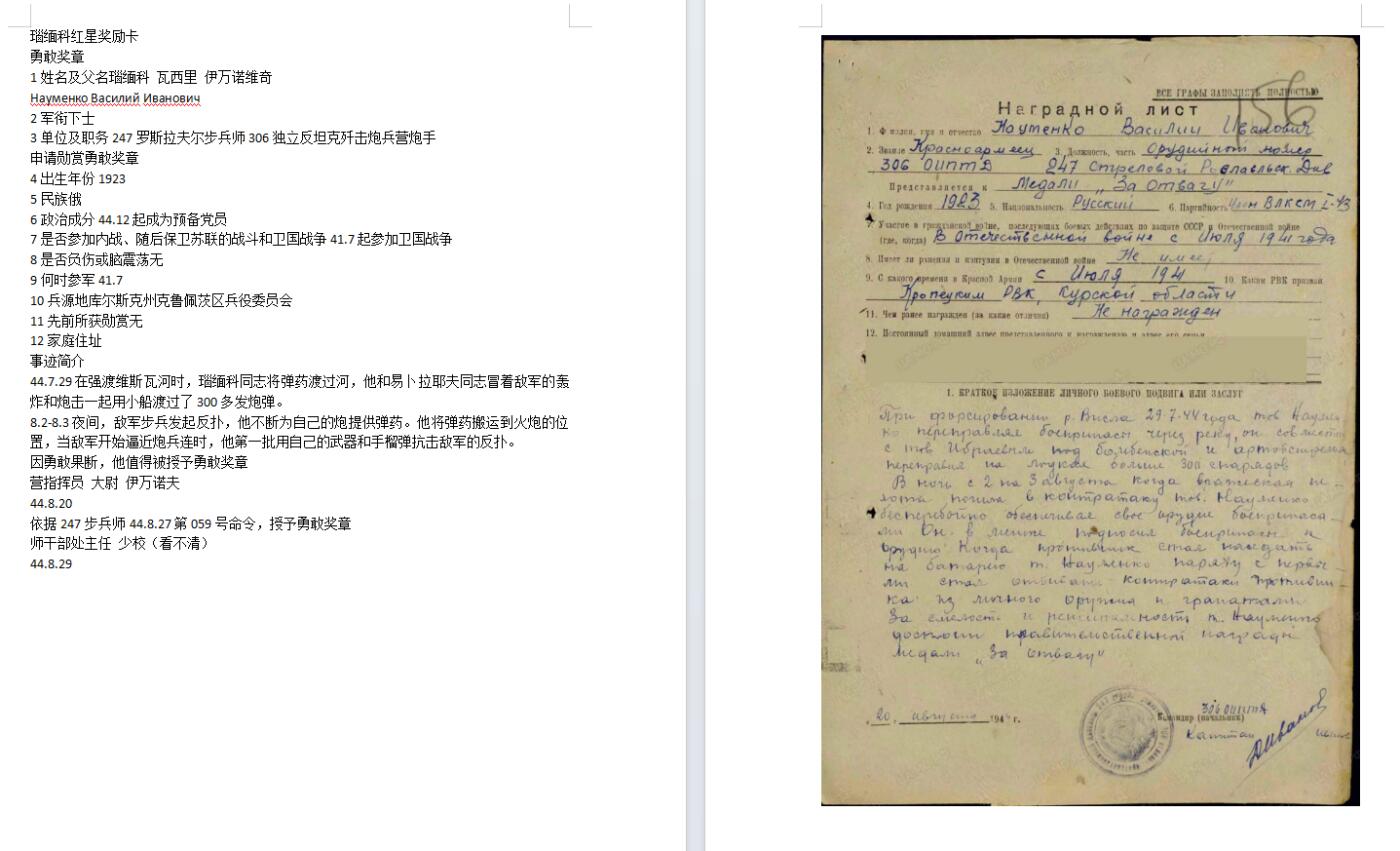 瑙缅科红星奖励卡
勇敢奖章
1 姓名及父名瑙缅科 瓦西里 伊万诺维奇
Науменко Василий Иванович
2 军衔下士
3 单位及职务 247 罗斯拉夫尔步兵师 306 独立反坦克歼击炮兵营炮手
申请勋赏勇敢奖章
4 出生年份 1923
5 民族俄
6 政治成分 44.12 起成为预备党员
7 是否参加内战、随后保卫苏联的战斗和卫国战争 41.7 起参加卫国战争
8 是否负伤或脑震荡无
9 何时参军 41.7
10 兵源地库尔斯克州克鲁佩茨区兵役委员会
11 先前所获勋赏无
12 家庭住址
事迹简介
44.7.29 在强渡维斯瓦河时，瑙缅科同志将弹药渡过河，他和易卜拉耶夫同志冒着敌军的轰
炸和炮击一起用小船渡过了 300 多发炮弹。
8.2-8.3 夜间，敌军步兵发起反扑，他不断为自己的炮提供弹药。他将弹药搬运到火炮的位
置，当敌军开始逼近炮兵连时，他第一批用自己的武器和手榴弹抗击敌军的反扑。
因勇敢果断，他值得被授予勇敢奖章
营指挥员 大尉 伊万诺夫
44.8.20
依据 247 步兵师 44.8.27 第 059 号命令，授予勇敢奖章
师干部处主任 少校（看不清）
44.8.29
ВСЕ ГРАФЫ ЗАПОЛНЯТЬ ПОЛНОСТЬЮ
156
Наградной лист
1. Фамилия, имя и отчество Науменко Василий Иванович
2. Звание Красноармеец 3. Должность, часть Орудийный номер
306 ОИПТД 247 Стрелковой Рославльск. Див
Представляется к Медали „За Отвагу"
4. Год рождения 1923 5. Национальность Русский 6. Партийность Член ВЛКСМ с 43
7. Участие в гражданской войне, последующих боевых действиях по защите СССР и Отечественной войне
(где, когда) В Отечественной войне с Июля 1941 года
8. Имеет ли ранения и контузии в Отечественной войне Не имеет
9. С какого времени в Красной Армии с Июля 1941 10. Каким РВК призван
Кропецким РВК, Курской области
11. Чем ранее награжден (за какие отличия) Не награжден
12. Постоянный домашний адрес представляемого к награждению и адрес его семьи
1. КРАТКОЕ ИЗЛОЖЕНИЕ ЛИЧНОГО БОЕВОГО ПОДВИГА ИЛИ ЗАСЛУГ
При форсировании р. Висла 29.7.44 года тов Наумен-
ко переправляя боеприпасы через реку, он совместно
с тов Ибраевым под бомбежкой и артобстрелом
переправил на лодках больше 300 снарядов
В ночь с 2 на 3 августа когда вражеская пе-
хота пошла в контратаку тов. Науменко
бесперебойно обеспечивал свое орудие боеприпаса-
ми Он подносил боеприпасы к
орудию Когда противник стал наседать
на батарею т. Науменко наряду с первы-
ми стал отбивать контратаки противни-
ка из личного оружия и гранатами
За смелость и решительность т. Науменко
достоин правительственной награды
медали „За отвагу"
„20„ августа 194 г.
306 ОИПТД
Командир (начальник)
Капитан